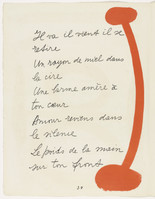 Il va il vient il se
retire
Un rayon de miel dans
la cire
Une larme amère à
ton cœur
Amour revient dans
le silence
Le poids de la main
sur ton front